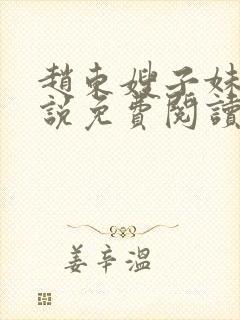 趙東嫂子妹
說免費閱讀
姜辛溫